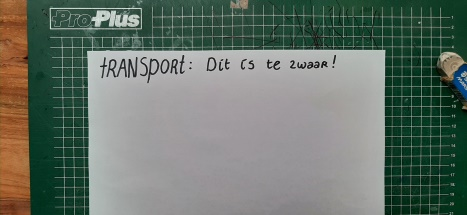 Pro-Plus
tRANSpORt: Dit is te zwaar!